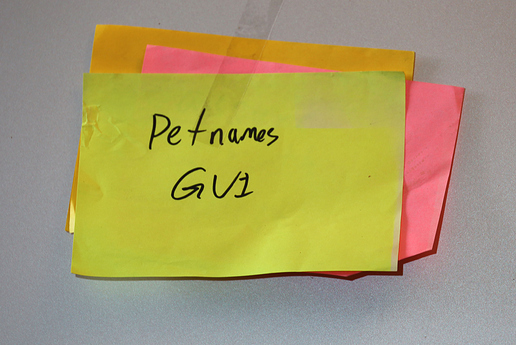 Petnames
GUI